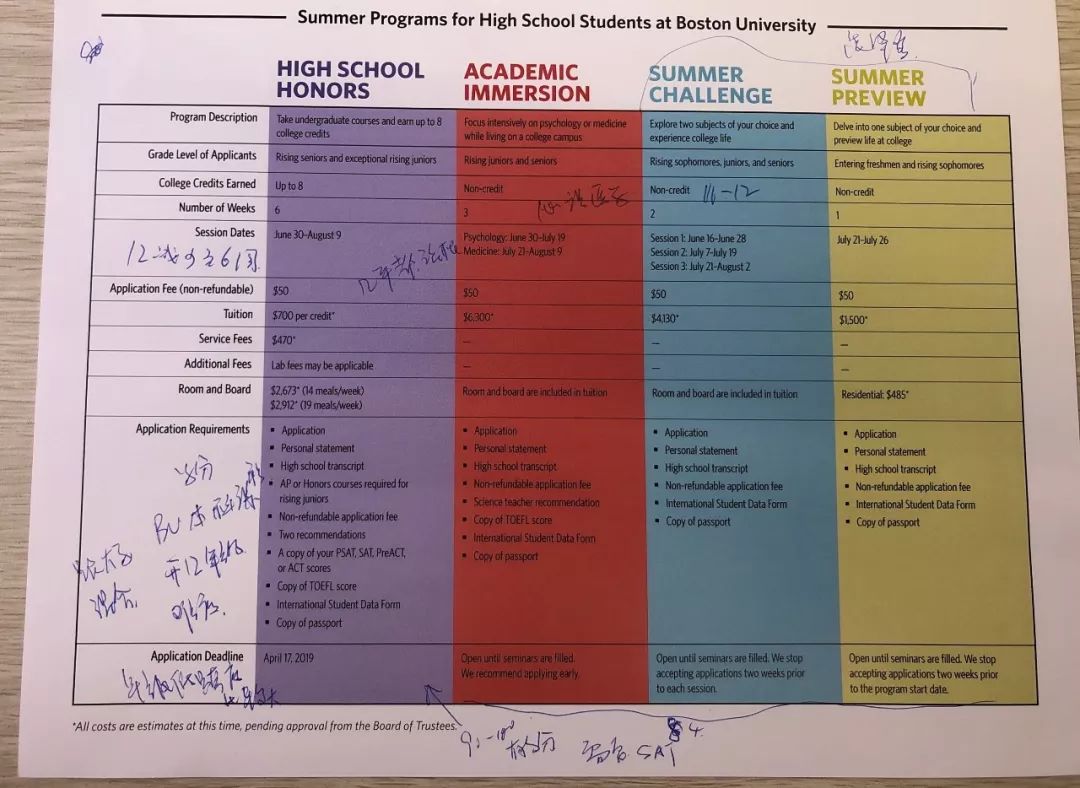 Summer Programs for High School Students at Boston University
HIGH SCHOOL HONORS
ACADEMIC IMMERSION
SUMMER CHALLENGE
SUMMER PREVIEW
Program Description
Take undergraduate courses and earn up to 8 college credits
Focus intensively on psychology or medicine while living on a college campus
Explore two subjects of your choice and experience college life
Delve into one subject of your choice and preview life at college
Grade Level of Applicants
Rising seniors and exceptional rising juniors
Rising juniors and seniors
Rising sophomores, juniors, and seniors
Entering freshmen and rising sophomores
College Credits Earned
Up to 8
Non-credit
Non-credit
Non-credit
Number of Weeks
6
3
2
1
Session Dates
June 30-August 9
Psychology: June 30-July 19
Medicine: July 21-August 9
Session 1: June 16-June 28
Session 2: July 7-July 19
Session 3: July 21-August 2
July 21-July 26
Application Fee (non-refundable)
$50
$50
$50
$50
Tuition
$700 per credit*
$6,300*
$4,130*
$1,500*
Service Fees
$470*
—
—
—
Additional Fees
Lab fees may be applicable
—
—
—
Room and Board
$2,673* (14 meals/week)
$2,912* (19 meals/week)
Room and board are included in tuition
Room and board are included in tuition
Residential: $485*
Application Requirements
▪ Application
▪ Personal statement
▪ High school transcript
▪ AP or Honors courses required for rising juniors
▪ Non-refundable application fee
▪ Two recommendations
▪ A copy of your PSAT, SAT, PreACT, or ACT scores
▪ Copy of TOEFL score
▪ International Student Data Form
▪ Copy of passport
▪ Application
▪ Personal statement
▪ High school transcript
▪ Non-refundable application fee
▪ Science teacher recommendation
▪ Copy of TOEFL score
▪ International Student Data Form
▪ Copy of passport
▪ Application
▪ Personal statement
▪ High school transcript
▪ Non-refundable application fee
▪ International Student Data Form
▪ Copy of passport
▪ Application
▪ Personal statement
▪ High school transcript
▪ Non-refundable application fee
▪ International Student Data Form
▪ Copy of passport
Application Deadline
April 17, 2019
Open until seminars are filled. We recommend applying early.
Open until seminars are filled. We stop accepting applications two weeks prior to each session.
Open until seminars are filled. We stop accepting applications two weeks prior to the program start date.
*All costs are estimates at this time, pending approval from the Board of Trustees.
BU
SAT